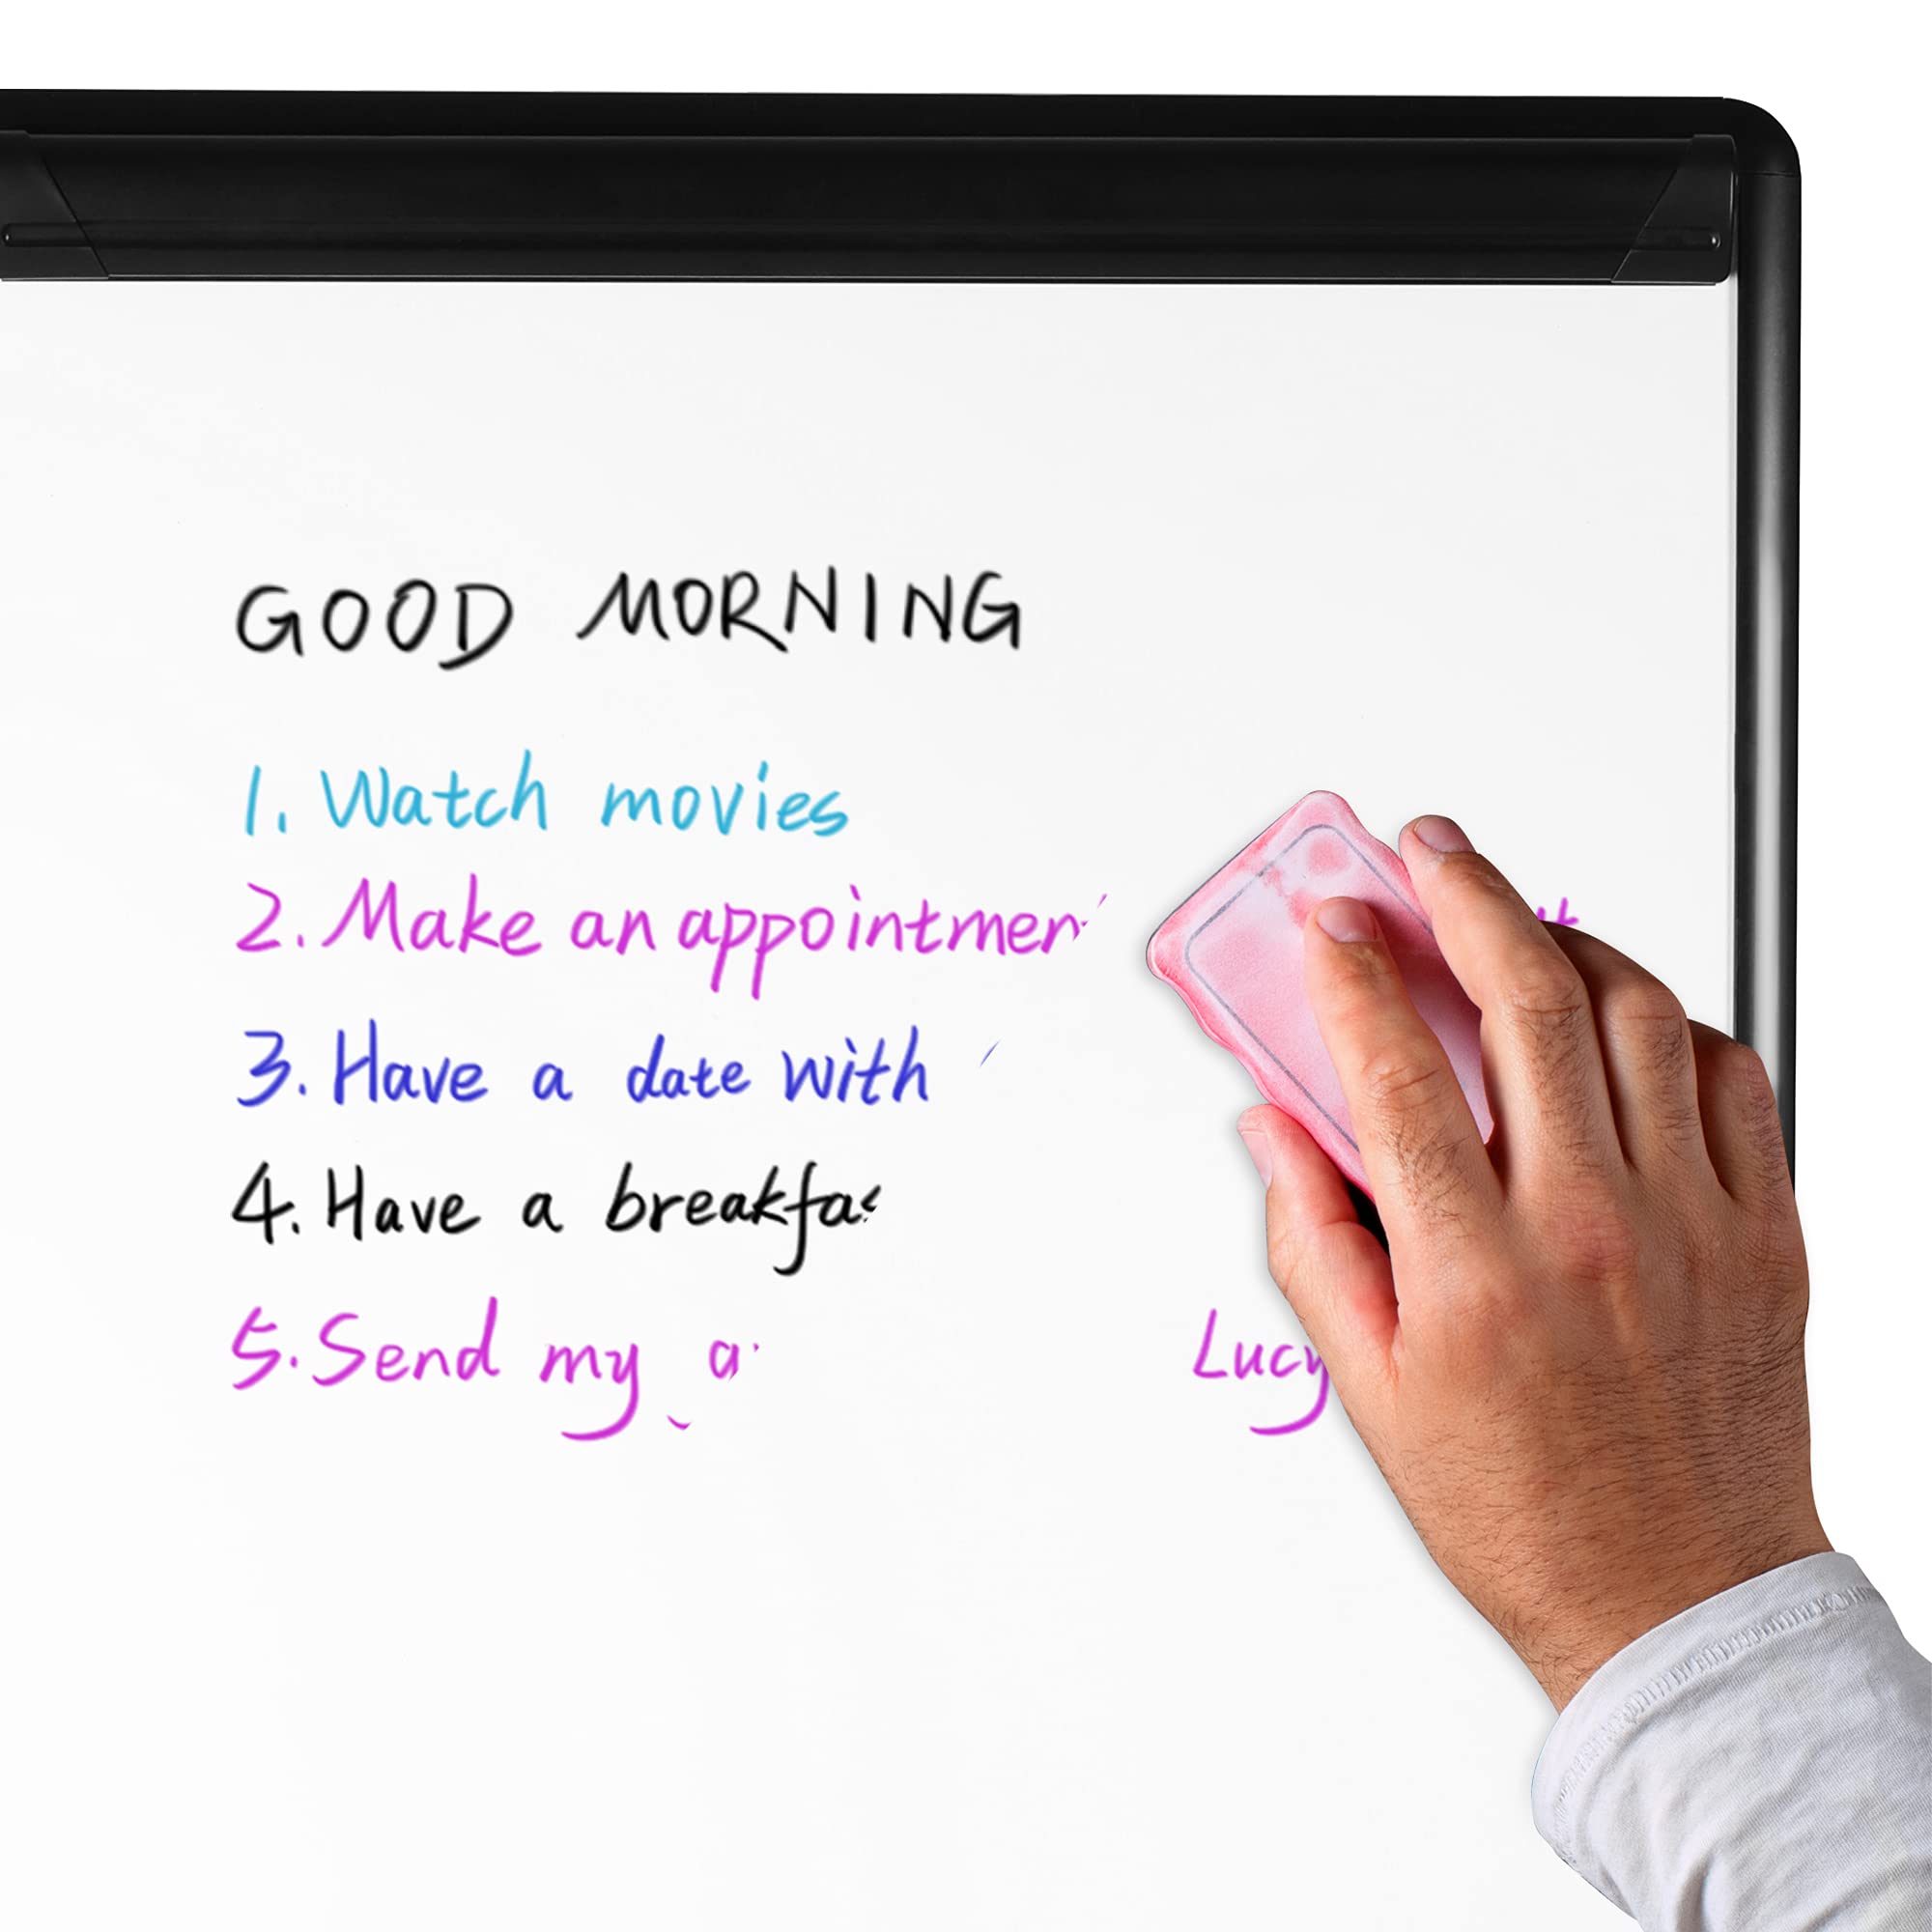 GOOD MORNING
1. Watch movies
2. Make an appointmen
3. Have a date with
4. Have a breakfas
5. Send my a Lucy